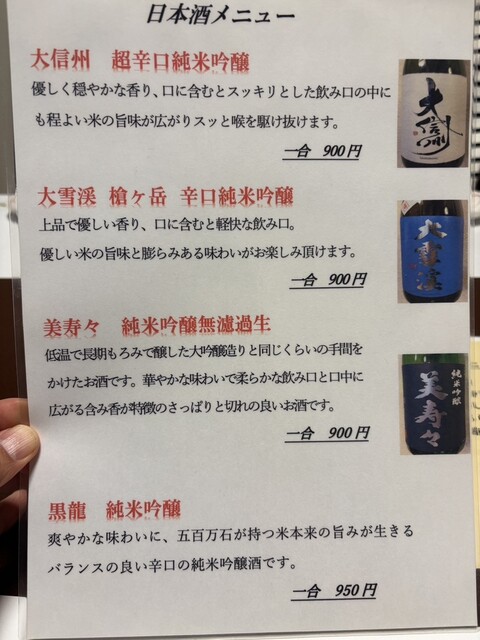 日本酒メニュー
大信州 超辛口純米吟醸
優しく穏やかな香り、口に含むとスッキリとした飲み口の中に
も程よい米の旨味が広がりスッと喉を駆け抜けます。
一合 900円
大雪渓 槍ヶ岳 辛口純米吟醸
上品で優しい香り、口に含むと軽快な飲み口。
優しい米の旨味と膨らみある味わいがお楽しみ頂けます。
一合 900円
美寿々 純米吟醸無濾過生
低温で長期もろみで醸した大吟醸造りと同じくらいの手間を
かけたお酒です。華やかな味わいで柔らかな飲み口と口中に
広がる含み香が特徴のさっぱりと切れの良いお酒です。
一合 900円
黒龍 純米吟醸
爽やかな味わいに、五百万石が持つ米本来の旨みが生きる
バランスの良い辛口の純米吟醸酒です。
一合 950円
大信州
大雪渓
純米吟醸
美寿々